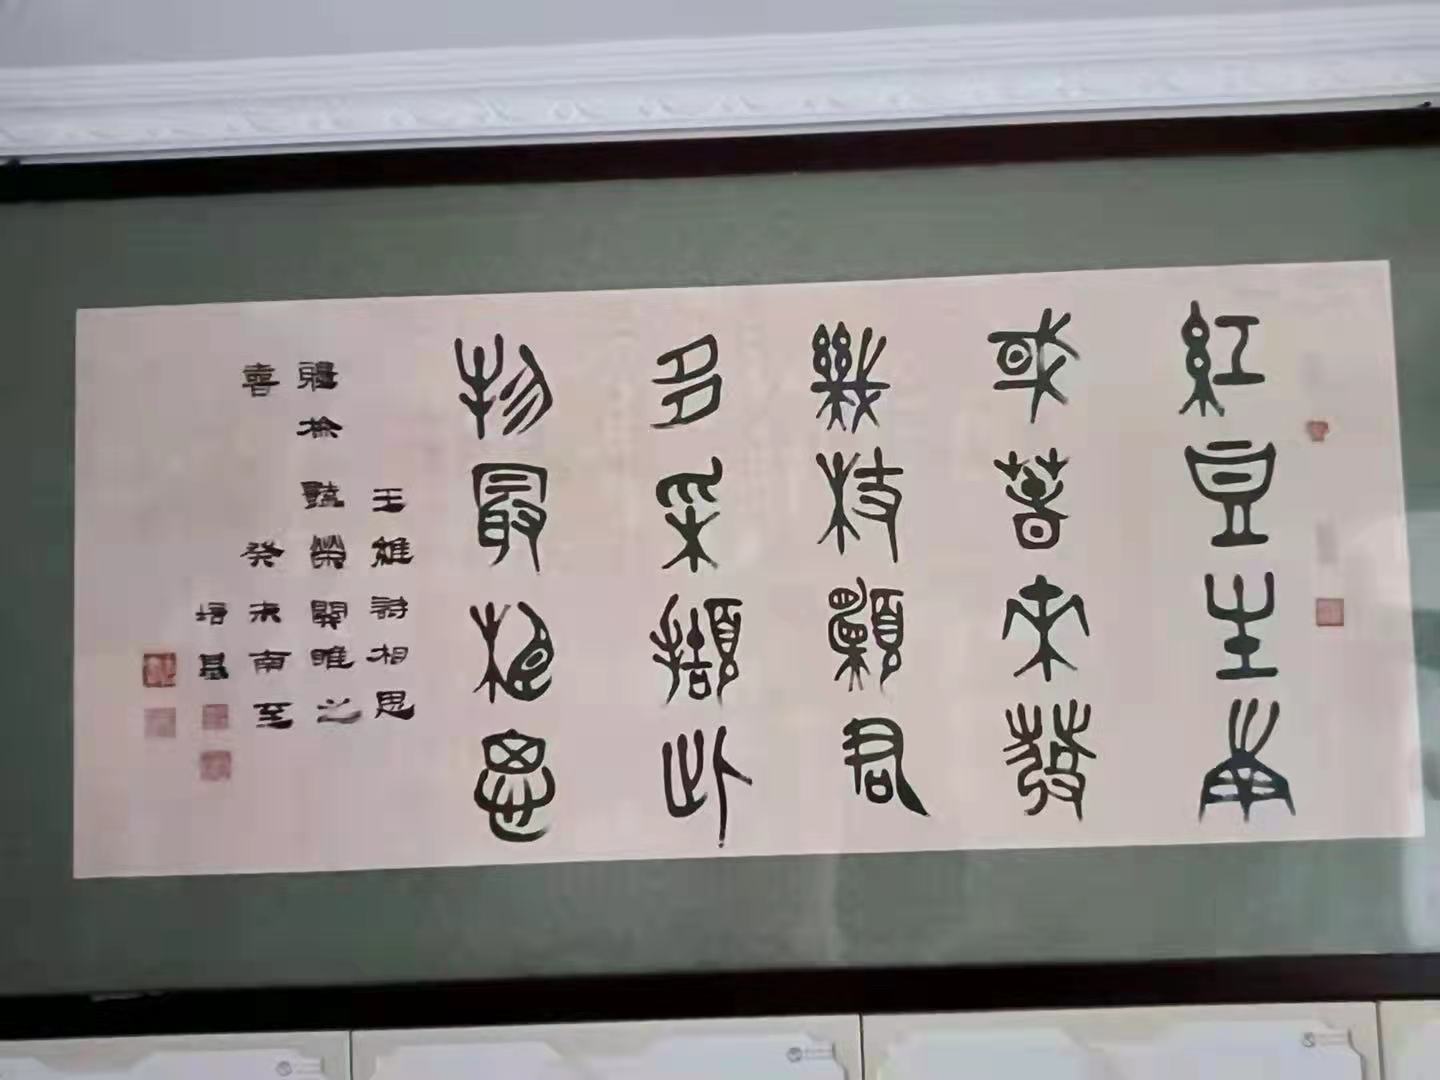 紅豆生南
或春來發
幾枝願君
多采擷此
物最相思
王維詩相思
關雎之
喜 癸未南至
培基